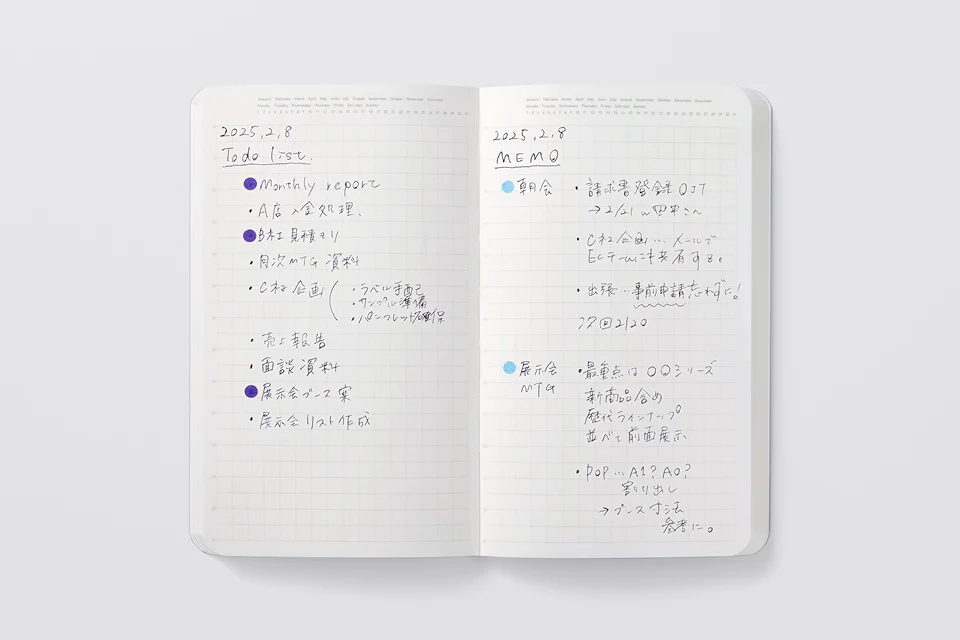 January February March April May June July August September October November December
Monday Tuesday Wednesday Thursday Friday Saturday Sunday
2025.2.8
Todo list.
Monthly report
・A店 入金処理、
B社見積もり
・月次MTG 資料
・C社企画
・ラベル手配
・サンプル準備
・パンフレット確保
・売上報告
・面談資料
展示会ブース案
・展示会リスト作成
January February March April May June July August September October November December
Monday Tuesday Wednesday Thursday Friday Saturday Sunday
2025.2.8
MEMO
朝会 ・請求書登録OJT
→2/21 w田中さん
・C社企画…メールで
ECチームにも共有する。
・出張…事前申請忘れずに!
次回2/20
展示会 ・最重点は〇〇シリーズ
MTG
新商品含め
歴代ラインナップ
並べて前面展示
・POP…A1?A0?
割り出し
→ブース寸法
参考に。